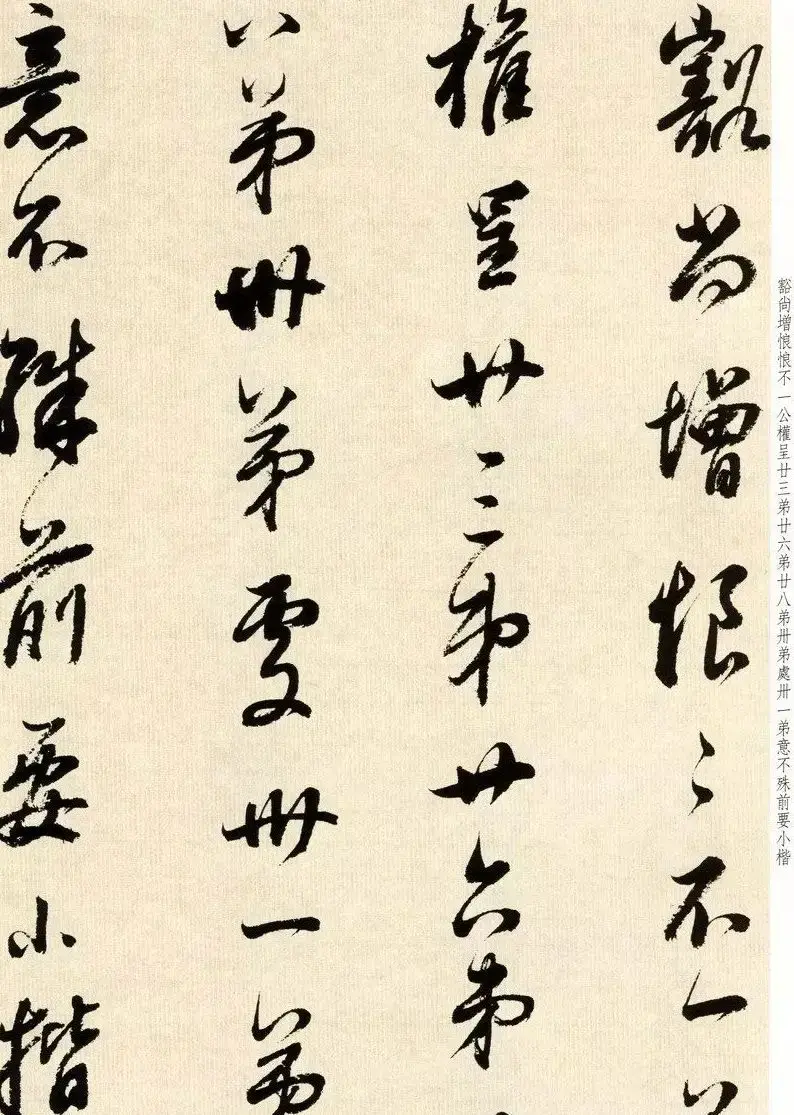 豁尚增悢悢不一公權呈廿三弟廿六弟廿八弟卅弟處卅一弟意不殊前要小楷
豁尚增悢〻不一
權呈廿三弟廿六弟
八弟卅弟處卅一弟
意不殊前要小楷